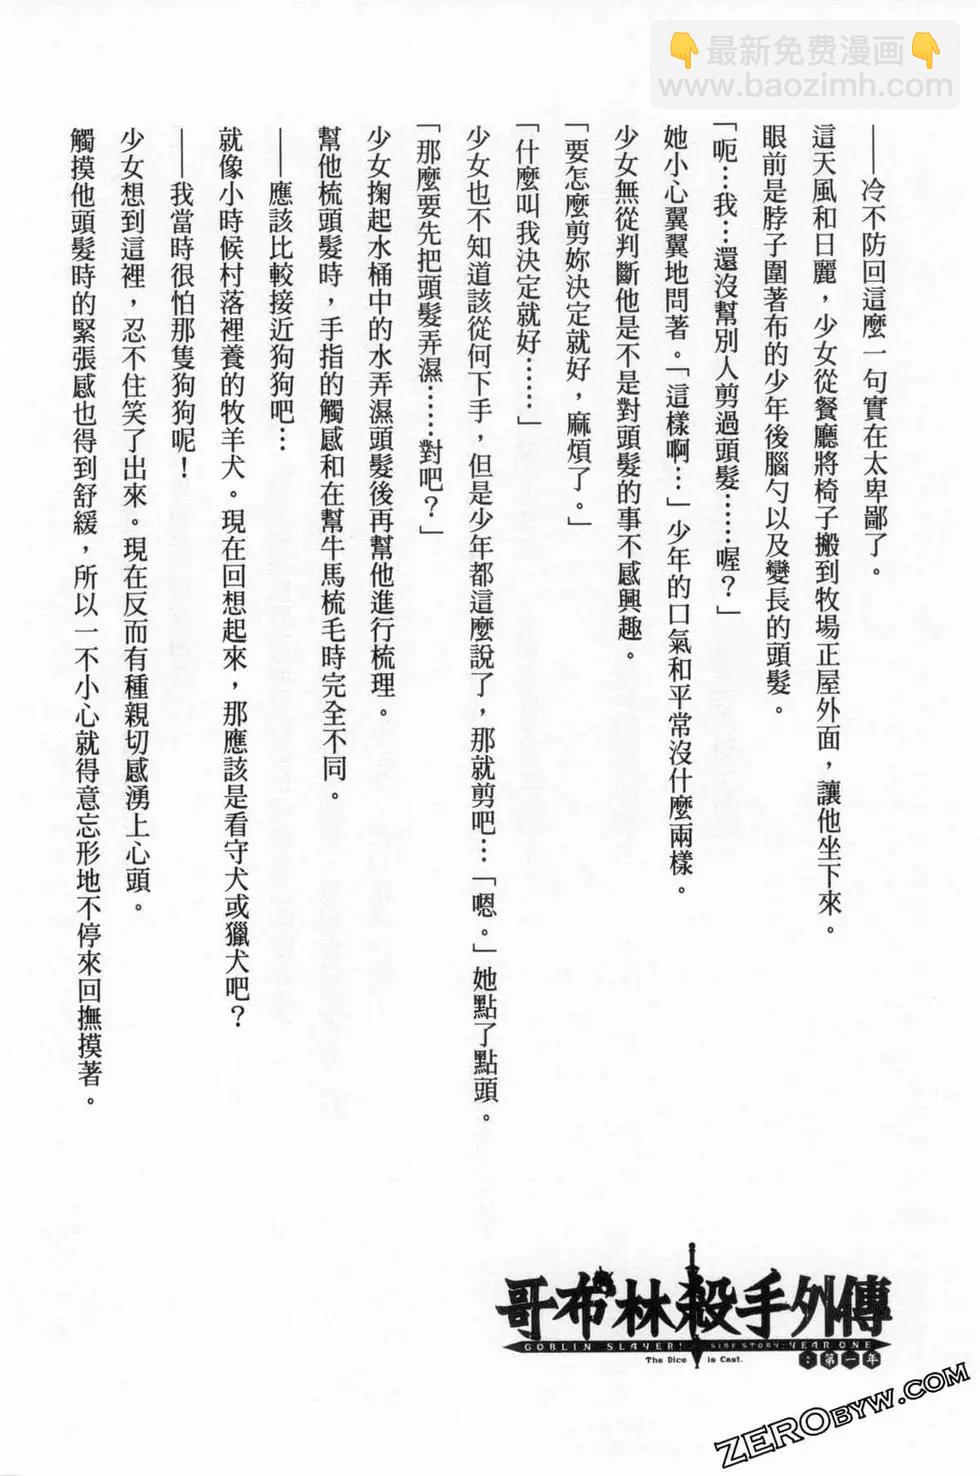 👇最新免费漫画👇
www.baozimh.com
——冷不防回這麼一句實在太卑鄙了。
這天風和日麗，少女從餐廳將椅子搬到牧場正屋外面，讓他坐下來。
眼前是脖子圍著布的少年後腦勺以及變長的頭髮。
「呃…我…還沒幫別人剪過頭髮……喔？」
她小心翼翼地問著。「這樣啊…」少年的口氣和平常沒什麼兩樣。
少女無從判斷他是不是對頭髮的事不感興趣。
「要怎麼剪妳決定就好，麻煩了。」
「什麼叫我決定就好……」
少女也不知道該從何下手，但是少年都這麼說了，那就剪吧…「嗯。」她點了點頭。
「那麼要先把頭髮弄濕……對吧？」
少女掬起水桶中的水弄濕頭髮後再幫他進行梳理。
幫他梳頭髮時，手指的觸感和在幫牛馬梳毛時完全不同。
——應該比較接近狗狗吧…
就像小時候村落裡養的牧羊犬。現在回想起來，那應該是看守犬或獵犬吧？
——我當時很怕那隻狗狗呢！
少女想到這裡，忍不住笑了出來。現在反而有種親切感湧上心頭。
觸摸他頭髮時的緊張感也得到舒緩，所以一不小心就得意忘形地不停來回撫摸著。
哥布林殺手外傳
GOBLIN SLAYER! SIDE STORY: YEAR ONE
：第一年
The Dice is Cast.
ZEROBYW.COM